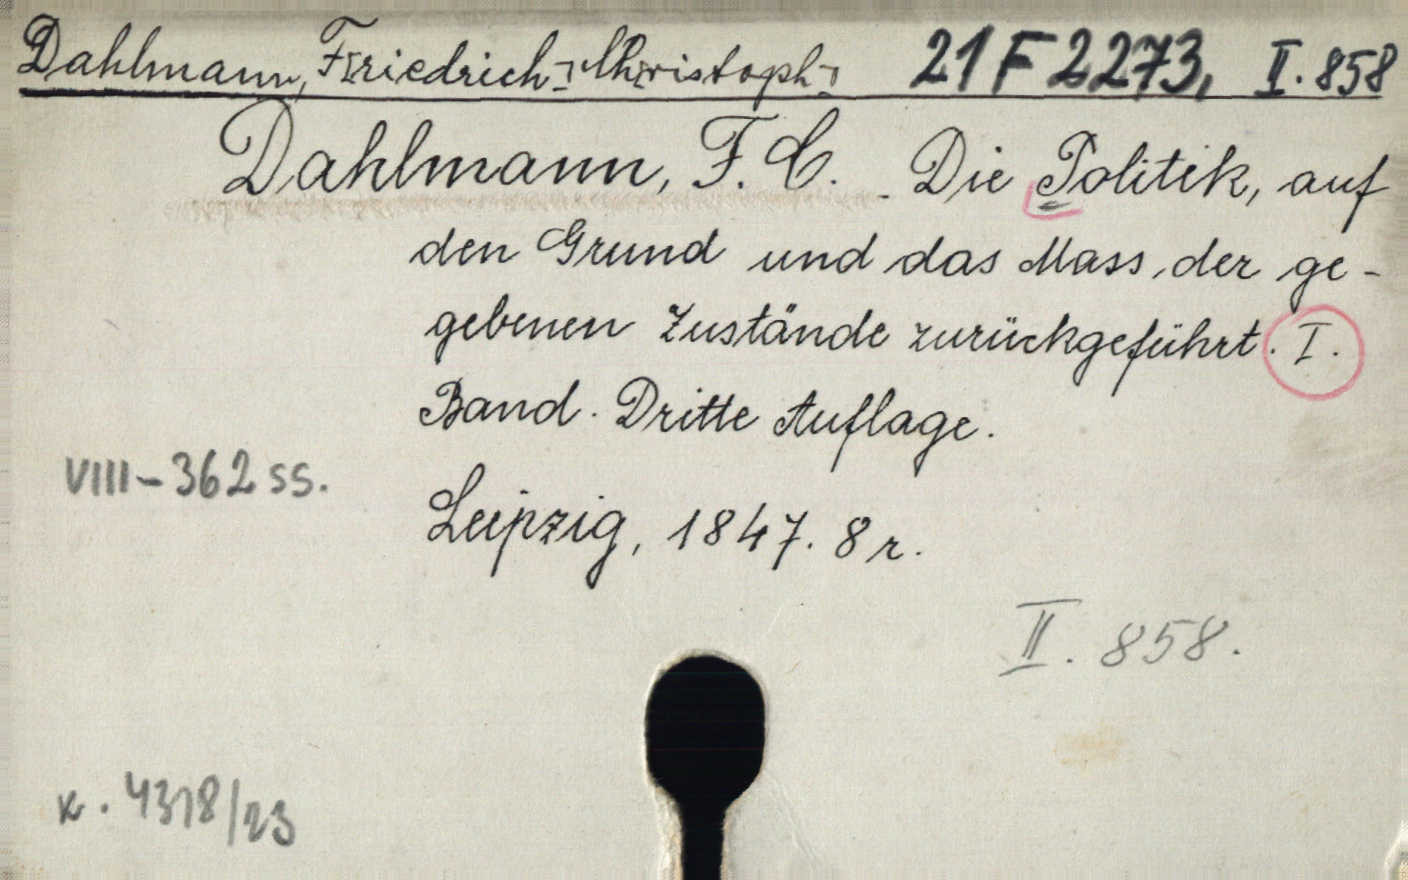 Dahlmann, F[riedrich] Ch[ristoph] 21 F 2273, II. 858
Dahlmann, F. C. Die Politik, auf
den Grund und das Mass der ge-
gebenen Zustände zurückgeführt. I.
Band. Dritte Auflage.
VIII-362 ss.
Leipzig, 1847. 8r.
II. 858.
k. 4318/23